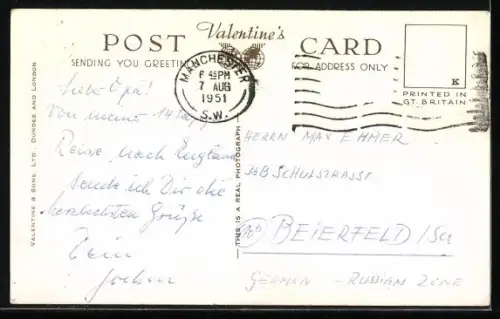 Valentine's
POST CARD
SENDING YOU GREETIN
FOR ADDRESS ONLY
MANCHESTER
6 45 PM
7 AUG
1951
S.W.
K
PRINTED IN
GT. BRITAIN
VALENTINE & SONS, LTD., DUNDEE AND LONDON
THIS IS A REAL PHOTOGRAPH
Lieber Opa!
Von meiner 14 tägg
Reise nach England
sende ich Dir die
herzlichsten Grüße
Dein
Jochen
HERRN MAX EHMER
36B SCHULSTRASSE
BEIERFELD/Sa
GERMAN - RUSSIAN ZONE